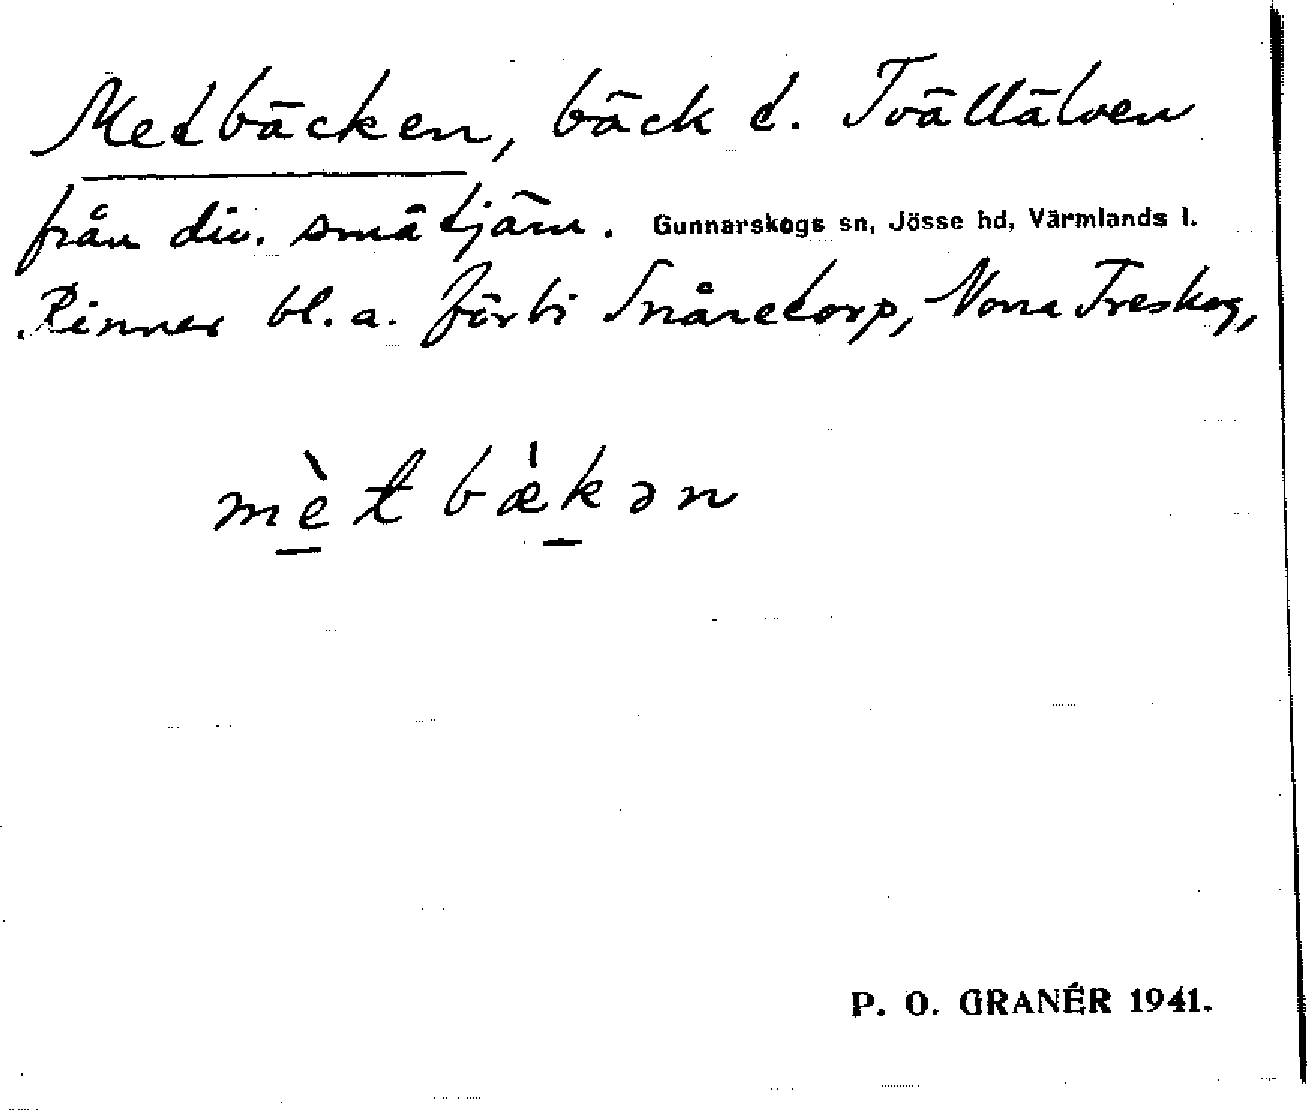 Metbäcken, bäck t. Tvällälven
från div. små tjärn. Gunnarskogs sn, Jösse hd, Värmlands l.
Rinner bl.a. förbi Snåretorp, Norra Treskog,
mètbækən
P. O. GRANÉR 1941.